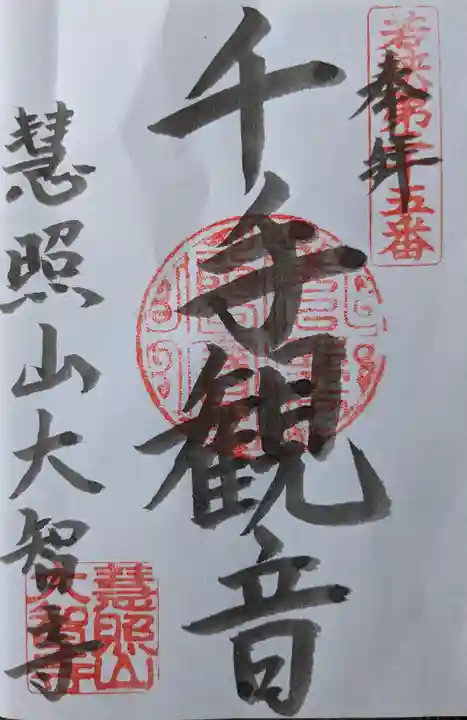 若狭第 五番
奉拝
千手観音
慧照山大智寺
慧照山
大智寺